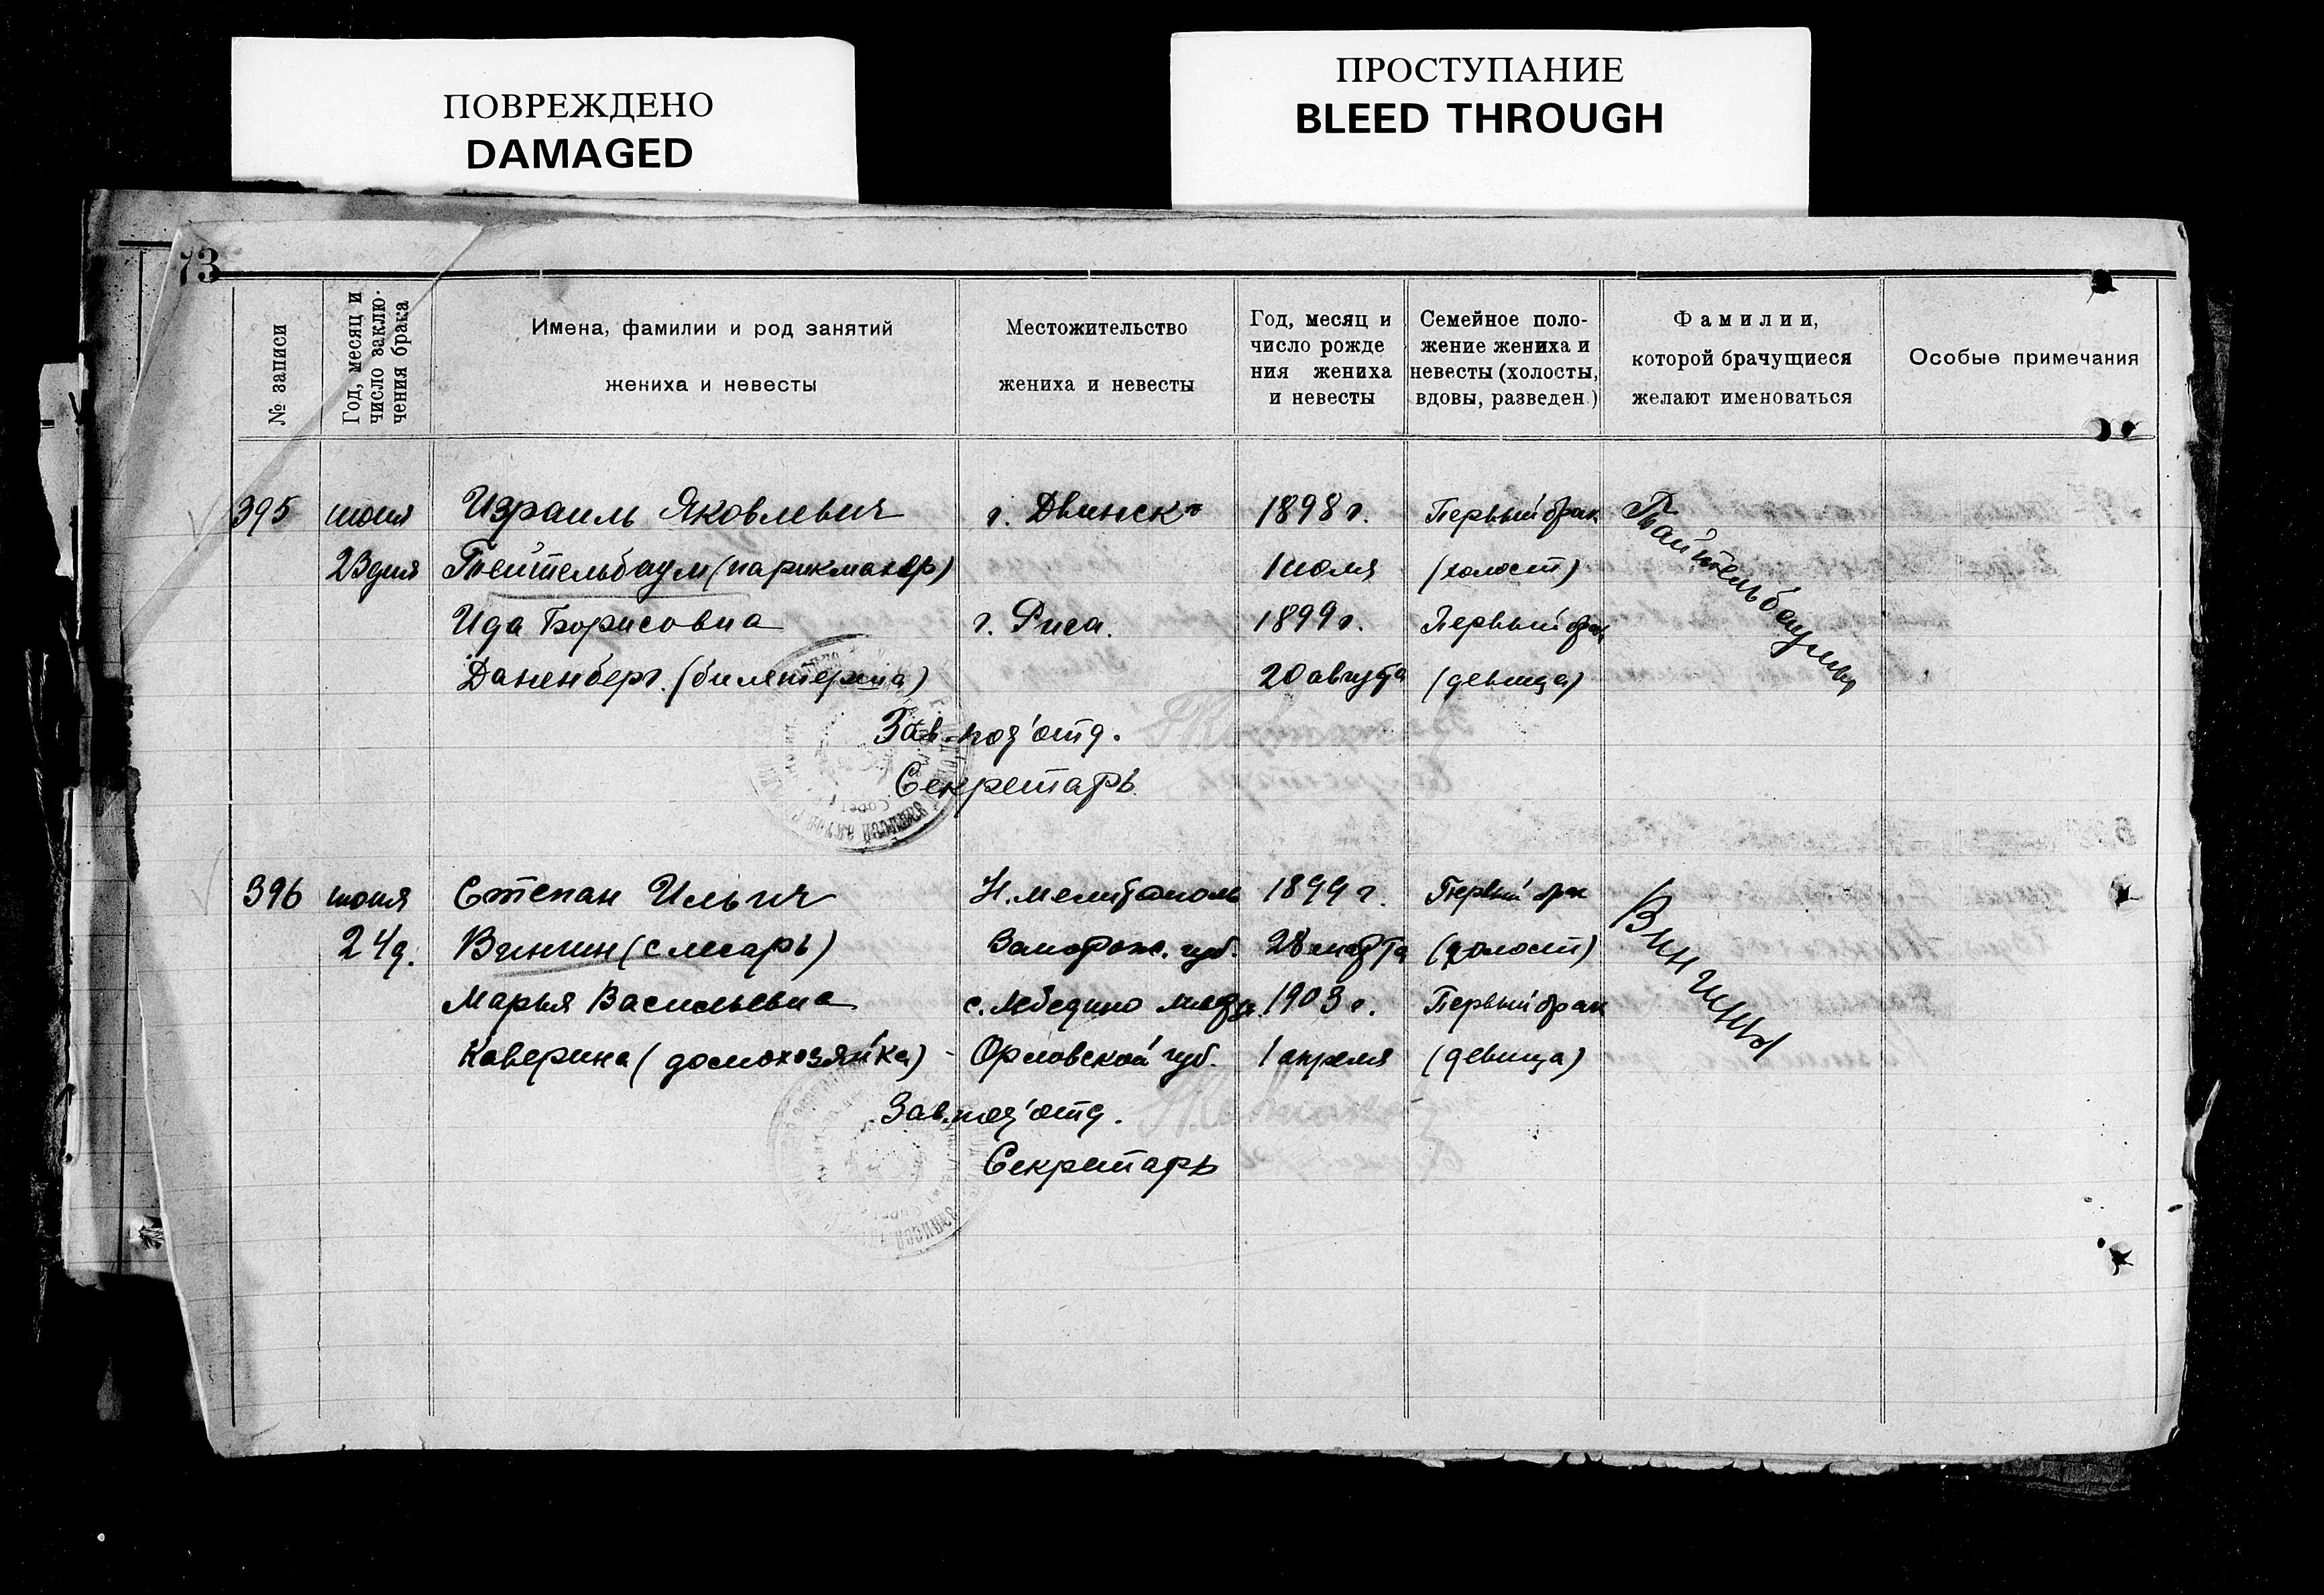 ПОВРЕЖДЕНО
DAMAGED
ПРОСТУПАНИЕ
BLEED THROUGH
73
№ записи
Год, месяц и
число заклю-
чения брака
Имена, фамилии и род занятий
жениха и невесты
Местожительство
жениха и невесты
Год, месяц и
число рожде
ния жениха
и невесты
Семейное поло-
жение жениха и
невесты (холосты,
вдовы, разведен.)
Фамилии,
которой брачущиеся
желают именоваться
Особые примечания
395 июня Израиль Яковлевич г. Двинск 1898 г. Первый брак
23 дня Тейтельбаум (парикмахер) 1 июля (холост)
Ида Борисовна г. Рига. 1899 г. Первый брак
Даненберг. (билетерша) 20 августа (девица)
Тайтельбаумы
Зав. под'отд.
Секретарь
396 июня Степан Ильич Н. Мелитополь 1899 г. Первый брак
24 д. Винчин (слесарь) Запорож. губ. 28 марта (холост)
Марья Васильевна с. Лебедино 1903 г. Первый брак
Каверина (домохозяйка) - Орловской губ. 1 апреля (девица)
Винчины
Зав. под'отд.
Секретарь